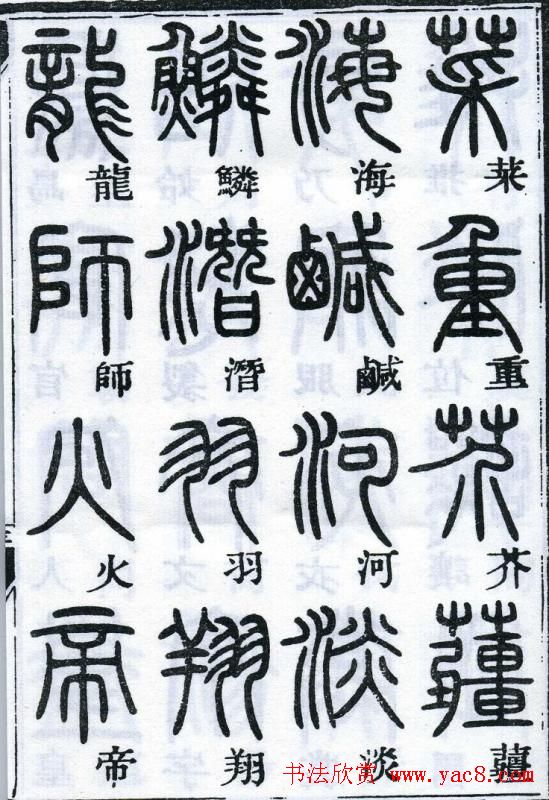 菜重芥薑
菜重芥薑
海鹹河淡
海鹹河淡
鱗潛羽翔
鱗潛羽翔
龍師火帝
龍師火帝
书法欣赏 www.yac8.com